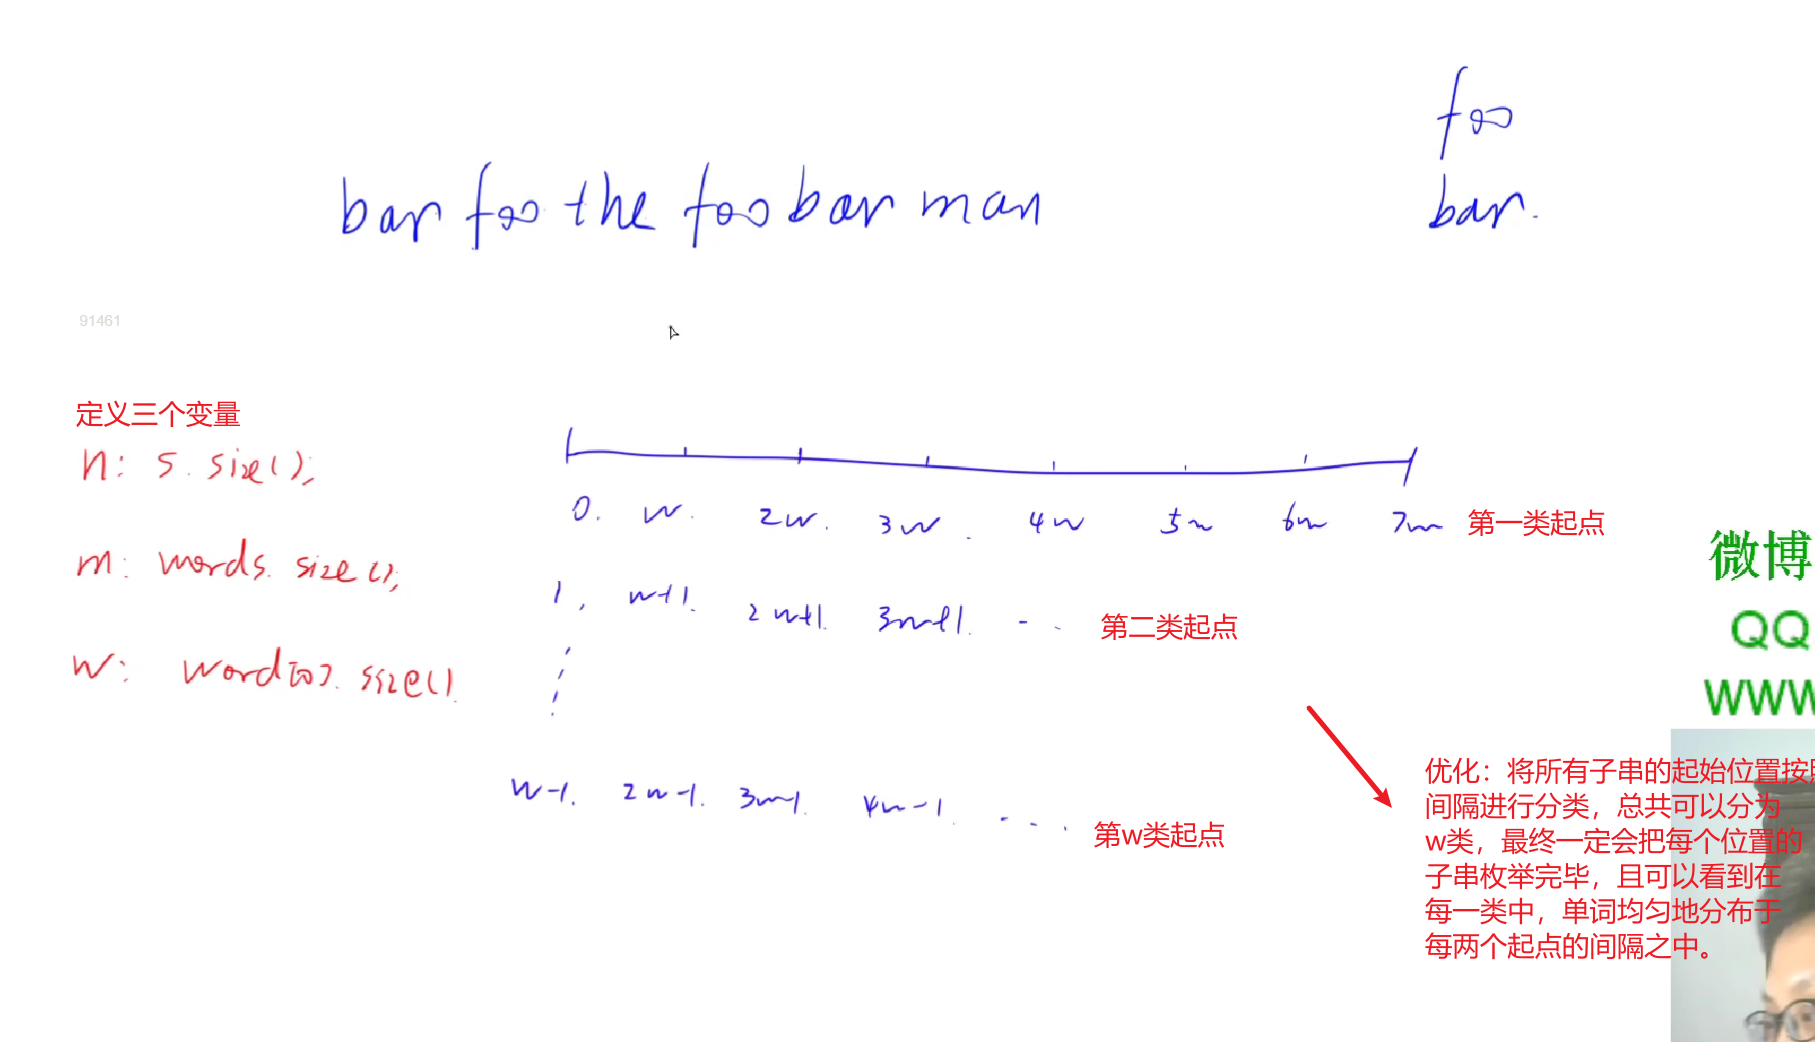 foo
bar.
bar foo the foo bar man
91461
定义三个变量
n: s.size();
m: words.size();
w: word[0].size()
0. w. 2w. 3w. 4w 5w 6w 7w 第一类起点
1, w+1. 2w+1. 3w+1. - . 第二类起点
w-1. 2w-1. 3w-1. 4w-1. . - . 第w类起点
微博
QQ
WWW
优化：将所有子串的起始位置按照
间隔进行分类，总共可以分为
w类，最终一定会把每个位置的
子串枚举完毕，且可以看到在
每一类中，单词均匀地分布于
每两个起点的间隔之中。